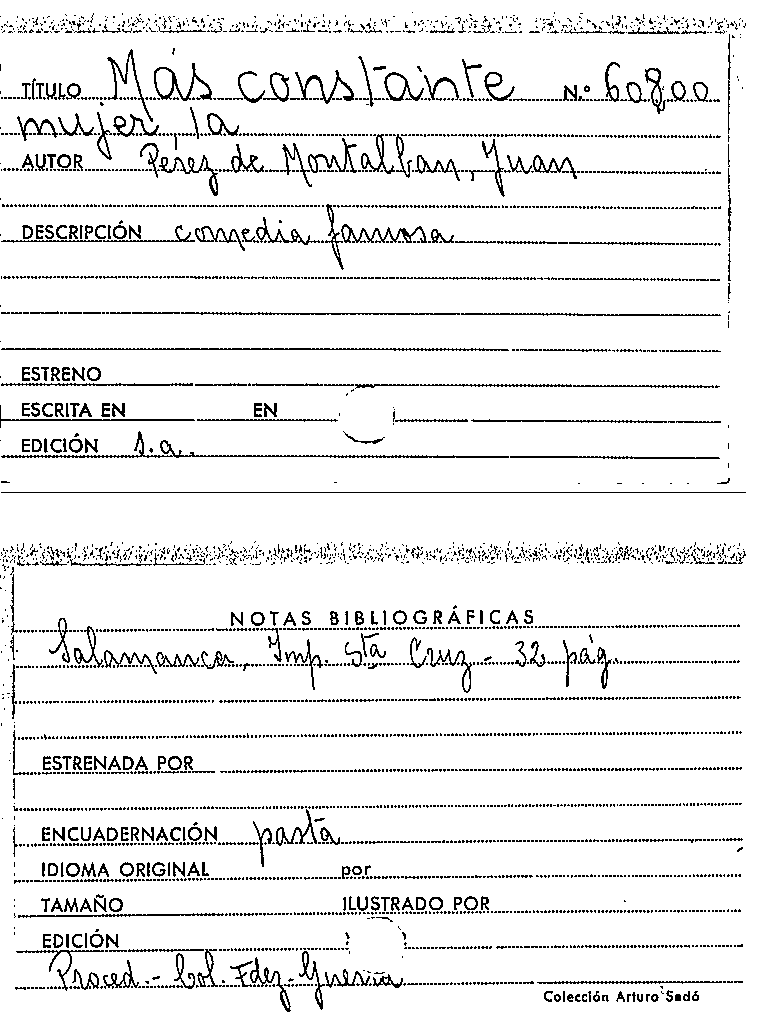 TÍTULO Más constante N.º 60800
mujer, la
AUTOR Pérez de Montalban, Juan
DESCRIPCIÓN comedia famosa
ESTRENO
ESCRITA EN EN
EDICIÓN s.a.
NOTAS BIBLIOGRÁFICAS
Salamanca, Imp. Sta Cruz - 32 pág.
ESTRENADA POR
ENCUADERNACIÓN pasta
IDIOMA ORIGINAL por
TAMAÑO ILUSTRADO POR
EDICIÓN
Proced.- Col. Fdez-Guerra
Colección Arturo Sedó